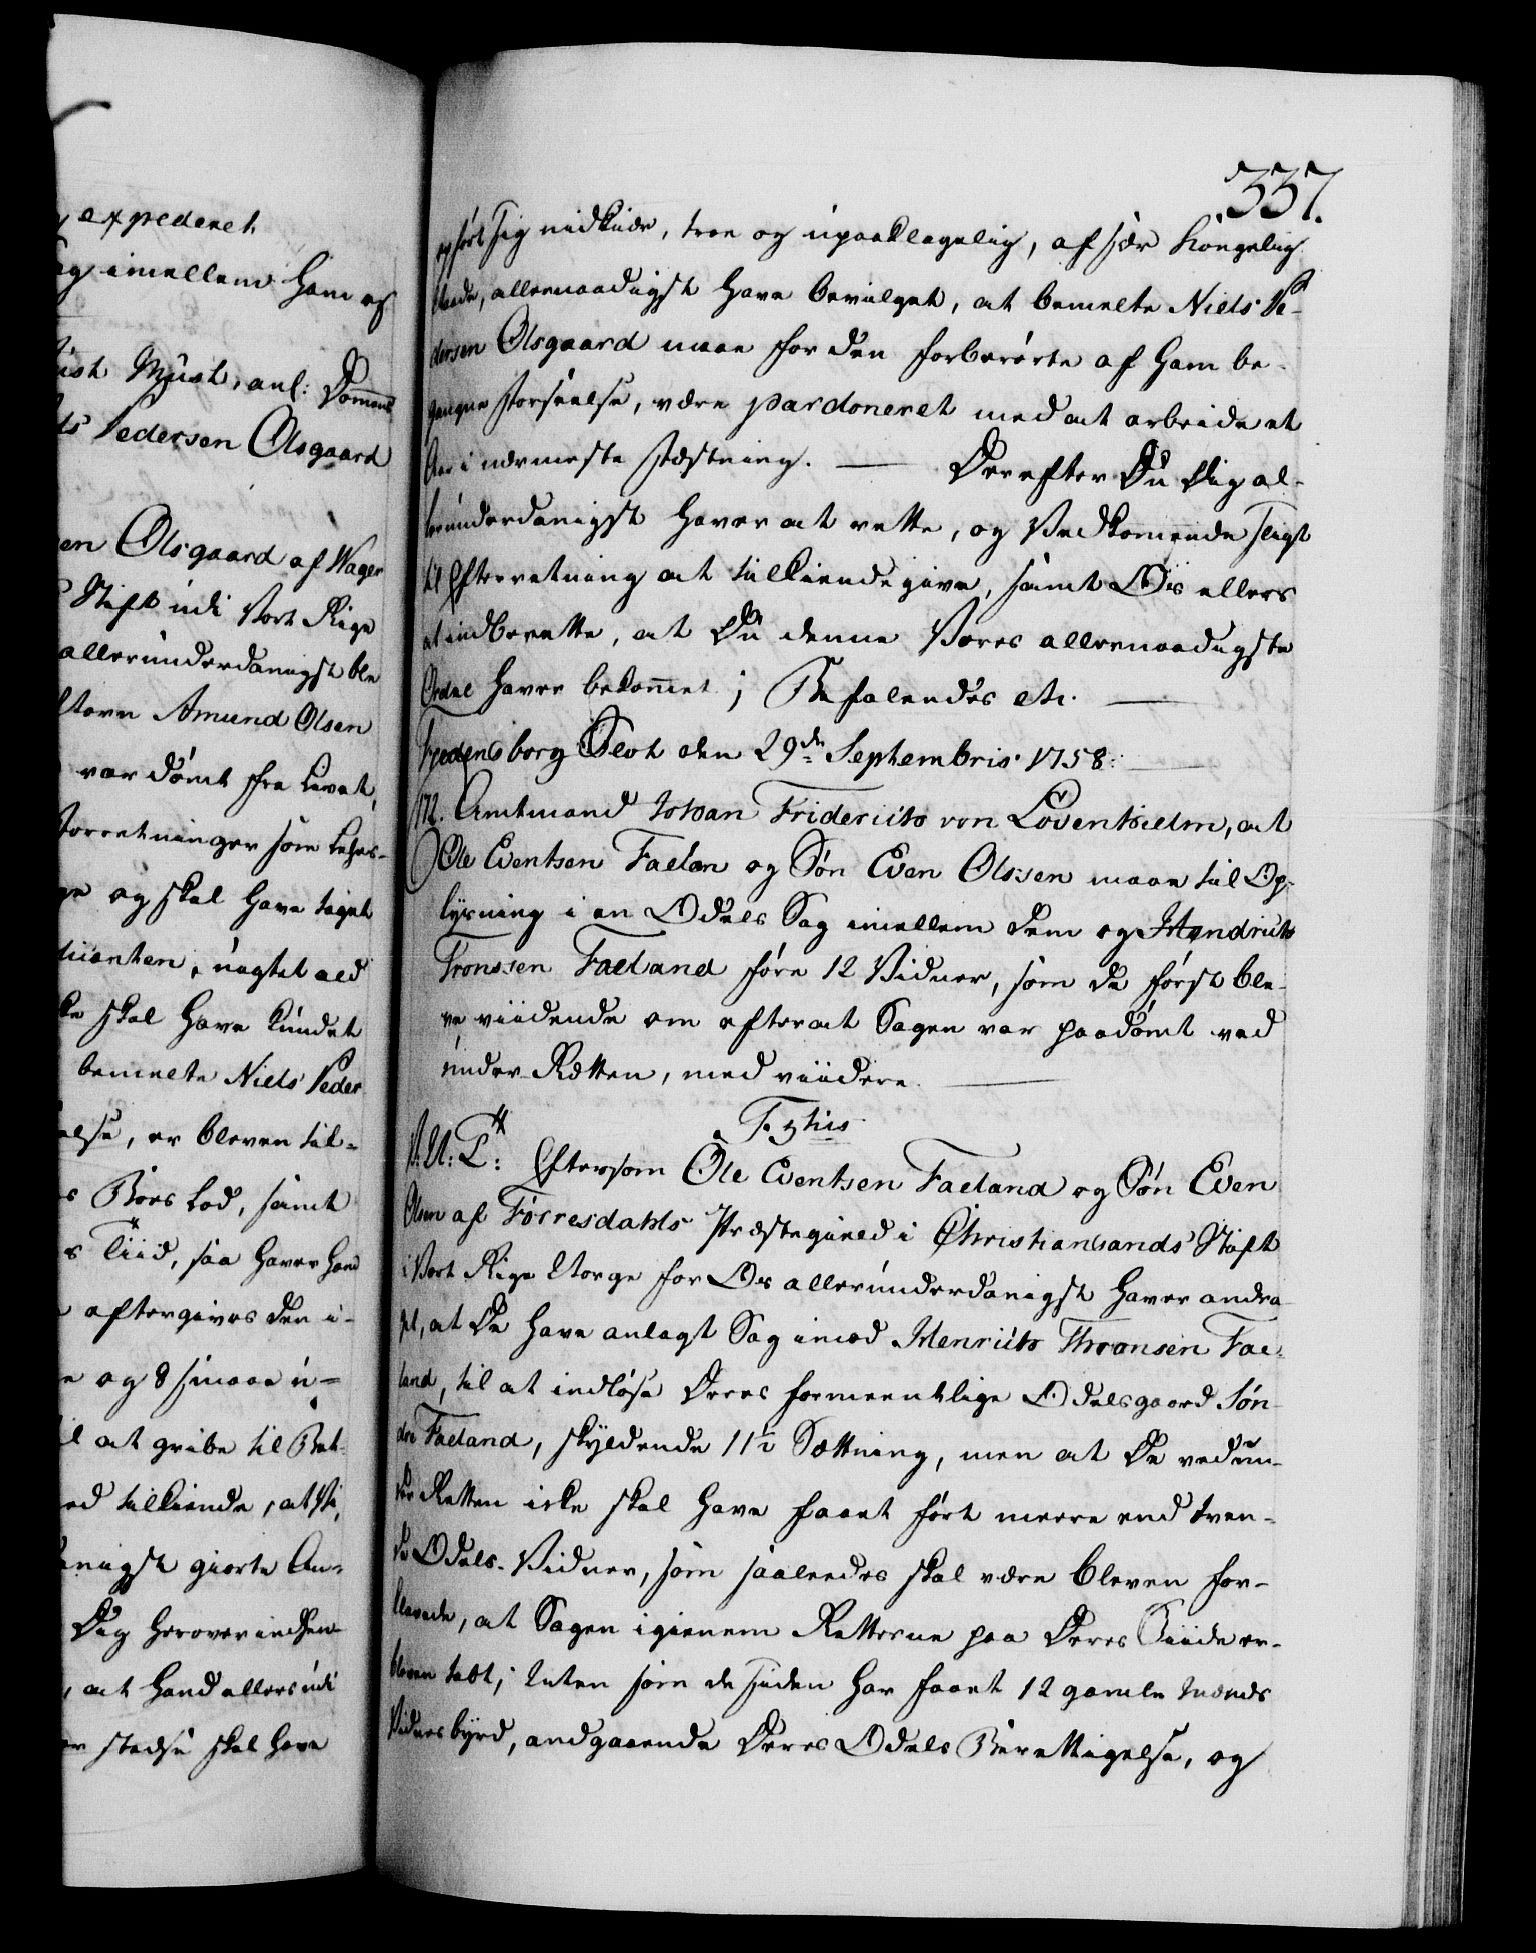 expederet.
imellem Ham og
Must, anl: Dommens
Pedersen Olsgaard
Olsgaard af Wager
Stift udi Vort Rige
allerunderdanigst ble
Amund Olsen
var dömt fra Livet,
Forretninger som Lehns-
og skal have taget
, uagtet ald
skal have kundet
bemelte Niels Peder
, er bleven til-
Boes Lod, samt
Tiid, saa haver hand
eftergives den i-
og 8 smaae u-
at gribe til Bet-
tilkiende, at Vi,
giorte An-
Dig herover indhen-
, at hand ellers udi
stedse skal have
337.
opfört sig nidkiær, troe og upaaklagelig, af sær Kongelig
Naade, allernaadigst have bevilget, at bemelte Niels Pe-
dersen Olsgaard maae for den forberörte af ham be-
gangne Forseelse, være pardoneret med at arbeide et
Aar i nærmeste Fæstning. — Derefter Du Dig al-
lerunderdanigst haver at rette, og Vedkommende sligt
til Efterretning at tilkiendegive, samt Os ellers
at indberette, at Du denne Vores allernaadigste
Ordre haver bekommet; Befalendes etc. —
Fredensborg Slot den 29de Septembris 1758. —
172. Amtmand Johan Friderich von Lövenhielm, at
Ole Eventsen Faeland og Søn Even Olssen maae til Op-
lysning i en Odels Sag imellem dem og Hendrich
Tronssen Faeland före 12 Vidner, som de först ble-
ve viidende om efterat Sagen var paadömt ved
under Retten, med viidere. —
F. 5tus.
Eftersom Ole Eventsen Faeland og Søn Even
Olsen af Förresdahls Præstegield i Christiansands Stift
i Vort Rige Norge for Os allerunderdanigst haver andra-
get, at De have anlagt Sag imod Henrich Thronsen Fae-
land, til at indlöse Deres formeentlige Odelsgaard Sön-
dre Faeland, skyldende 11½ Sættning, men at De ved un-
der Retten icke skal have faaet fört meere end tven-
de Odels-Vidner, som saaledes skal være bleven for-
klarede, at Sagen igienem Retterne paa Deres Siide er
bleven tabt; Uden som de siden har faaet 12 gamle Mænds
Vidnesbyrd, andgaaende Deres Odels Berettigelse, og